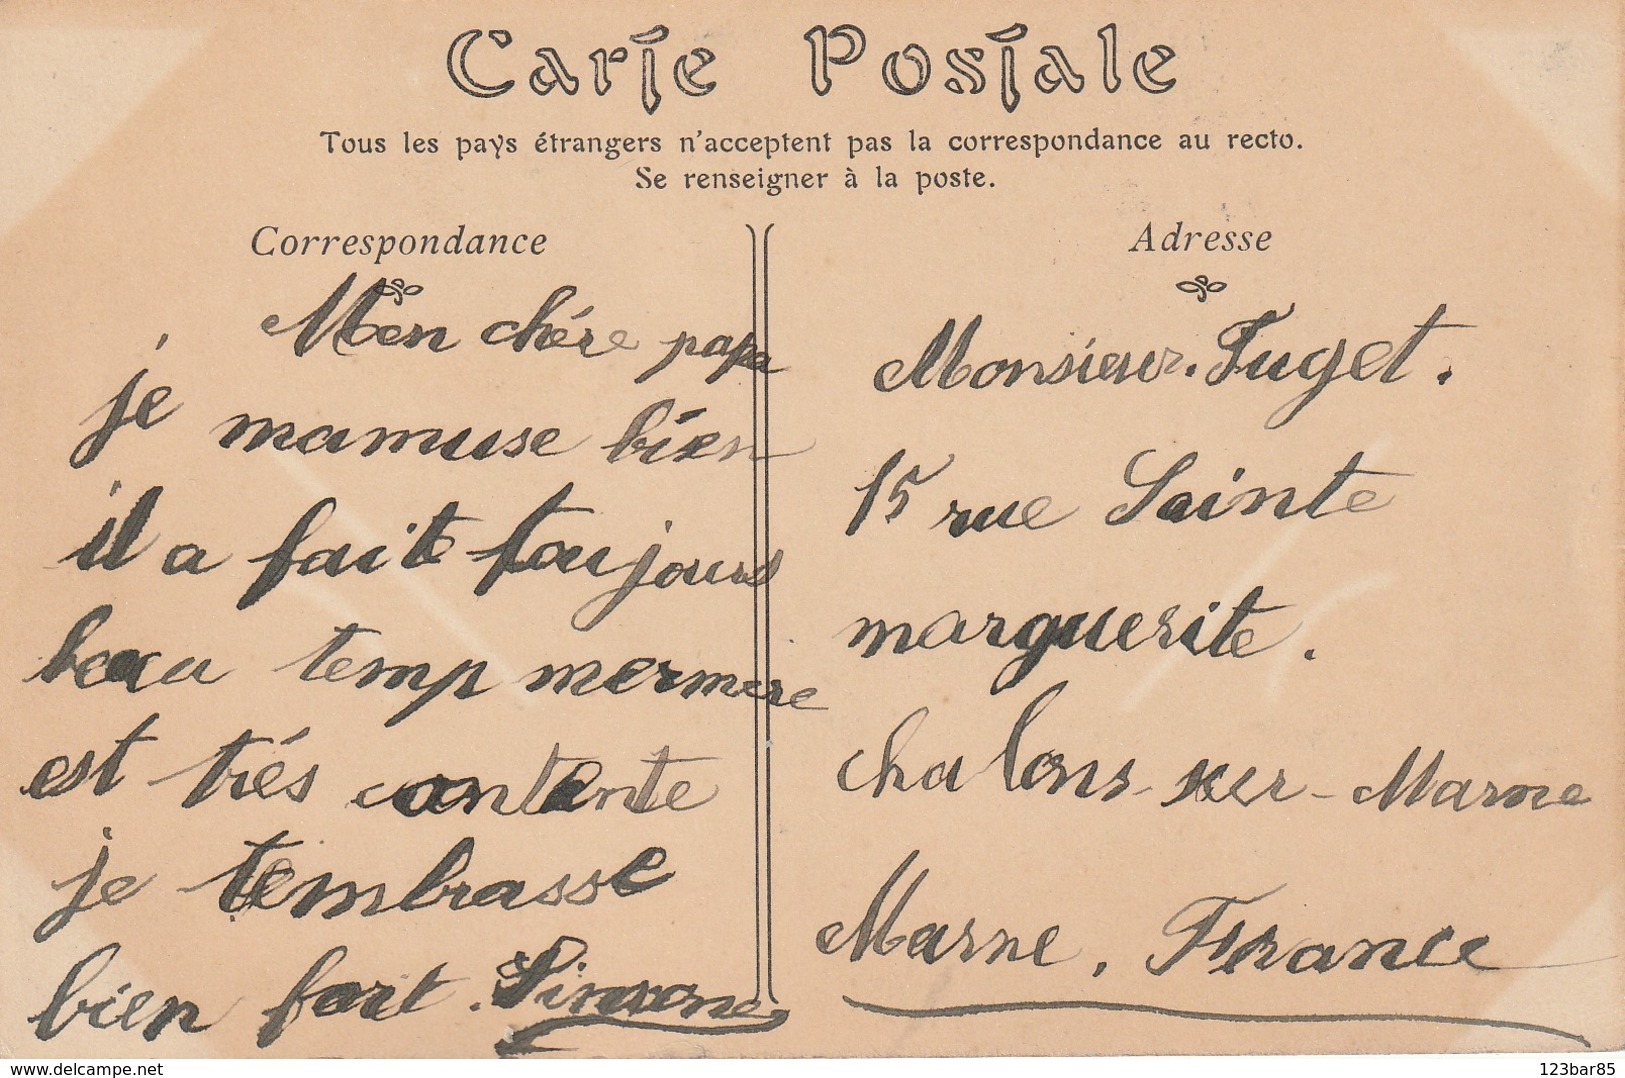 Carte Postale
Tous les pays étrangers n'acceptent pas la correspondance au recto.
Se renseigner à la poste.
Correspondance
Mon chére papa
je mamuse bien
il a fait toujours
beau temp mermere
est trés contente
je tembrasse
bien fort. Simone
Adresse
Monsieur. Fuget.
15 rue Sainte
marguerite.
chalons-sur-Marne
Marne, France
www.delcampe.net
123bar85